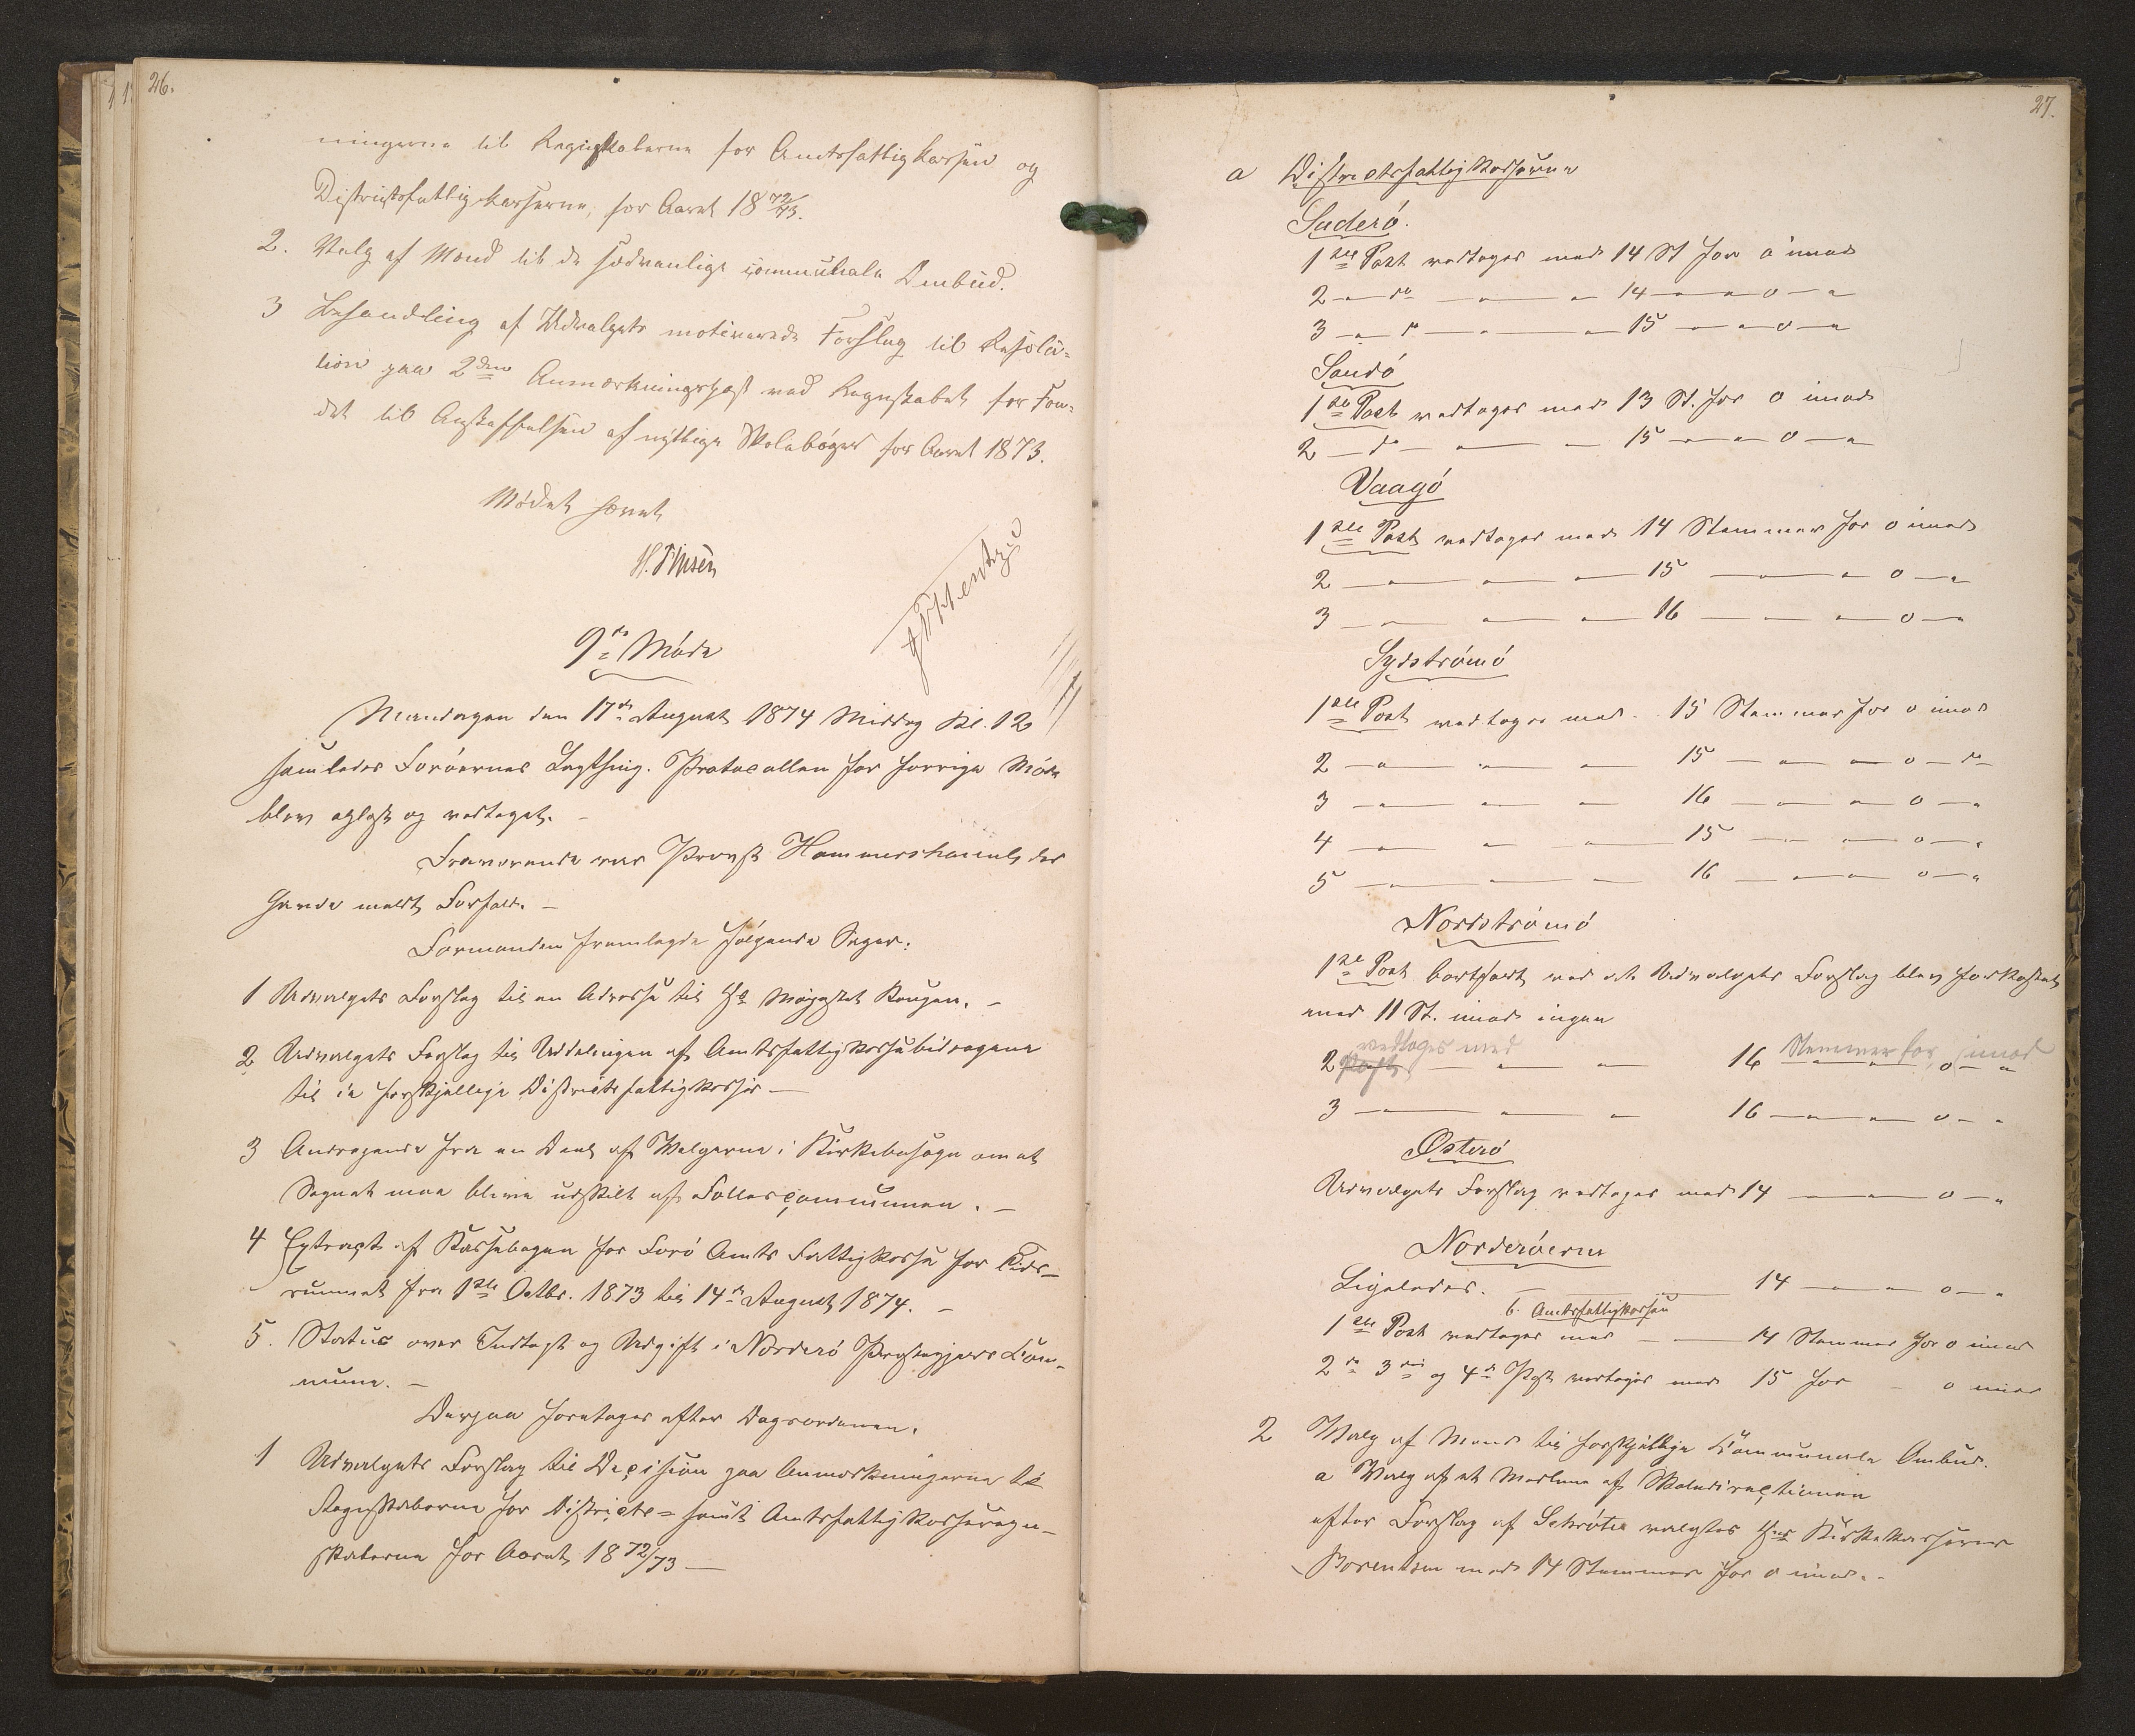 26.
ningerne til Regnskaberne for Amtsfattigkassen og
Districtsfattigkasserne, for Aaret 1872/73.
2. Valg af Mænd til de sædvanlige communale Ombud.
3 Behandling af Udvalgets motiverede Forslag til Resolu-
tion paa 2den Anmærkningspost ved Regnskabet for Fon-
det til Anskaffelsen af nyttige Skolebøger for Aaret 1873.
Mødet hævet
H. Finsen
9de Møde
Mandagen den 17de August 1874 Middag Kl. 12
samledes Færøernes Lagthing. Protocollen for forrige Møde
blev oplæst og vedtaget. -
Fraværende var Provst Hammershaimb, der
havde meldt Forfald. -
Formanden fremlagde følgende Sager:
1 Udvalgets Forslag til en Adresse til Hs Majestæt Kongen. -
2 Udvalgets Forslag til Uddelingen af Amtsfattigkassebidragene
til de forskjellige Districtsfattigkasser -
3 Andragende fra en Deel af Vælgerne i Kirkebøsogn om at
Sognet maa blive udskilt af Fællescommunen. -
4 Extract af Kassebogen for Færø Amts Fattigkasse for Tids-
rummet fra 1ste Octbr. 1873 til 14de August 1874. -
5. Status over Indtægt og Udgift i Norderø Præstegjelds Com-
mune. -
Derpaa foretoges efter Dagsordenen.
1 Udvalgets Forslag til Decision paa Anmærkningerne til
Regnskaberne for Districts- samt Amtsfattigkasseregn-
skaberne for Aaret 1872/73 -
27.
a Districtsfattigkasserne
Suderø.
1ste Post vedtoges med 14 St for 0 imod
2 - do - - 14 - - 0 - -
3 - do - - 15 - - 0 - -
Sandø
1ste Post vedtoges med 13 St. for 0 imod
2 - do - - 15 - - 0 - -
Vaagø
1ste Post vedtoges med 14 Stemmer for 0 imod
2 - - - 15 - - 0 - -
3 - - - 16 - - 0 - -
Sydstrømø
1ste Post vedtoges med 15 Stemmer for 0 imod
2 - - - 15 - - 0 - do
3 - - - 16 - - 0 - -
4 - - - 15 - - 0 - -
5 - - - 16 - - 0 - -
Nordstrømø
1ste Post bortfaldt ved at Udvalgets Forslag blev forkastet
med 11 St. imod ingen
vedtoges med Stemmer for imod
2 Post - - 16 - - 0 - -
3 - - - 16 - - 0 - -
Østerø
Udvalgets Forslag vedtoges med 14 - - 0 - -
Norderøerne
Ligeledes. - 14 - - 0 - -
b. Amtsfattigkassen
1ste Post vedtoges med - 14 Stemmer for 0 imod
2de 3die og 4de Post vedtoges med 15 for - 0 imod
2 Valg af Mænd til forskjellige Communale Ombud.
a Valg af et Medlem af Skoledirectionen
efter Forslag af Schrøter valgtes Hr Kirkekasserer
Sørensen med 14 Stemmer for 0 imod. -